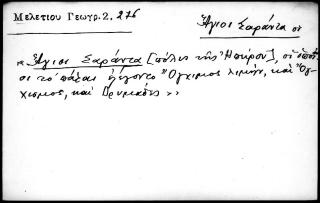 Μελετίου Γεωγρ. 2, 276
Ἅγιοι Σαράντα οἱ
"Ἅγιοι Σαράντα [πόλις τῆς Ἠπείρου], οἱ
τὸ πάλαι ἐλέγοντο Ὄγχισμος λιμήν, καὶ Ὀγ-
χισμος, καὶ